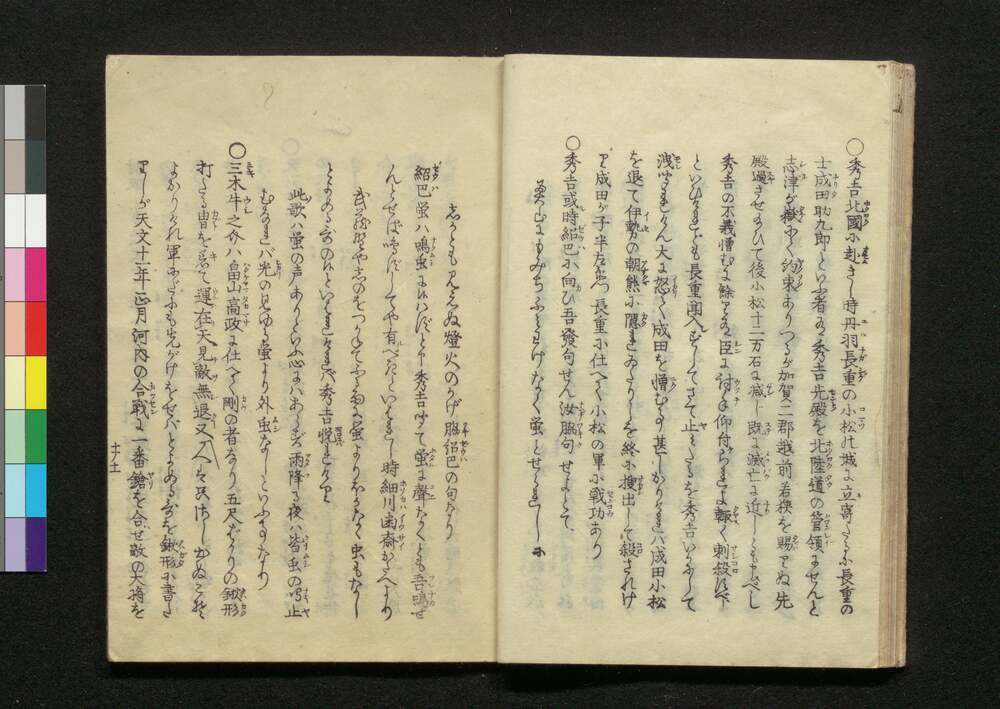 〇秀吉北國に赴きし時丹羽長重の小松の城に立寄たまふに長重の
士成田助九郎といふ者に秀吉先殿を北陸道の管領にせんと
志津が嶽にて約束ありつるが加賀二郡越前若狭を賜りてぬ先
殿過させ給ひて後小松十二万石に減し既に滅亡に近しとも申べし
秀吉の不義憎むに餘りあり臣に討手仰付られよ輙く刺殺すべし
といひけれども長重聞入ずしてさて止けるを秀吉いかにして
洩聞れけん大に怒て成田を憎むこと甚しかりければ成田小松
を退て伊勢の朝熊に隠れゐたりしを終に搜出して殺されけ
り成田が子半左衛門長重に仕へて小松の軍に戦功あり
〇秀吉或時紹巴に向ひ吾發句せん汝脇句せよとて
奥山にもみぢふみわけなく螢とせられしに
しかとも見えぬ燈火のかげ脇紹巴の句なり
紹巴螢ハ鳴虫にハ候ハずと申秀吉聞て螢に聲なくとも吾鳴せ
んとせば鳴ずしてや有べきといはれし時細川幽斎かたへより
武蔵野やしのをつかねてふる雨に螢よりほかなく虫もなし
とよめる哥の候といはれければ秀吉悦れけり
此歌ハ螢の声ありといふ心にハあらず雨降る夜ハ皆虫の鳴止
むなれバ光の見ゆる螢より外虫なしといふ事なり
〇三木牛之介ハ畠山高政に仕へて剛の者なり五尺ばかりの鍬形
打たる冑を着て運在天見敵無退又人
よからりけれ軍のたびにも先がけをせバとよめる哥を鍬形に書た
りしが天文十一年正月河内の合戦に一番鎗を合せ敵の大将を
十ノ士